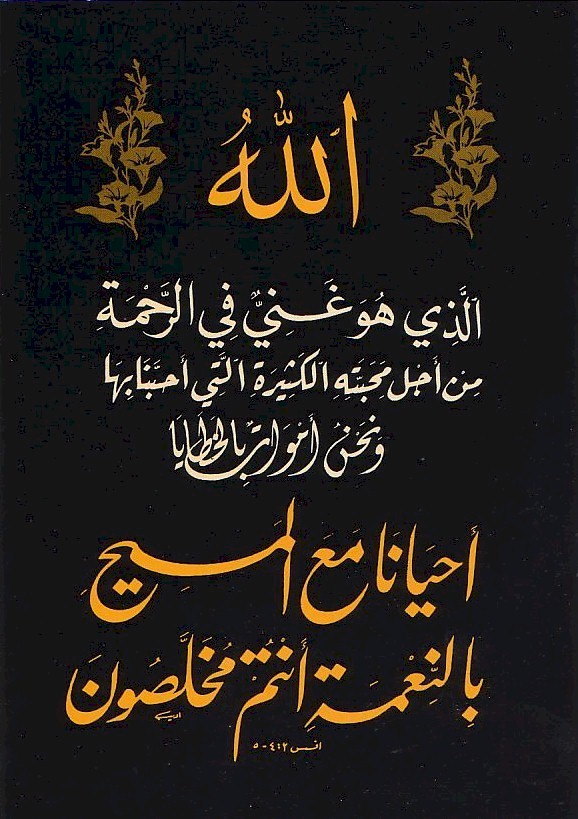 الله
الَّذِي هُوَ غَنِيٌّ فِي الرَّحْمَةِ
مِنْ أَجْلِ مَحَبَّتِهِ الكَثِيرَةِ الَّتِي أَحَبَّنَا بِهَا
وَنَحْنُ أَمْوَاتٌ بِالخَطَايَا
أَحْيَانَا مَعَ المَسِيحِ
بِالنِّعْمَةِ أَنْتُمْ مُخَلَّصُونَ
افسس ٢:٤-٥